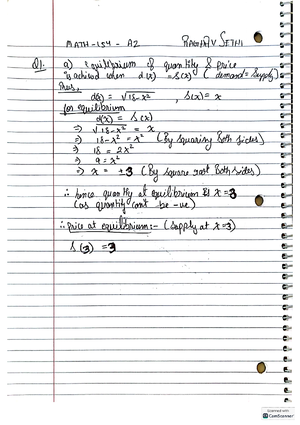 MATH-154 - A2 RAGHAV SETHI
Q1. a) Equilibrium of quantity & price
is achieved when d(x) = s(x) (demand = supply)
Thus,
d(x) = √18-x² , s(x) = x
for equilibrium
d(x) = s(x)
⇒ √18-x² = x
⇒ 18-x² = x² (By squaring both sides)
⇒ 18 = 2x²
⇒ 9 = x²
⇒ x = ±3 (By square root both sides)
∴ hence quantity at equilibrium is x=3
(as quantity can't be -ve)
∴ Price at equilibrium:- (supply at x=3)
s(3) = 3
Scanned with
CS CamScanner